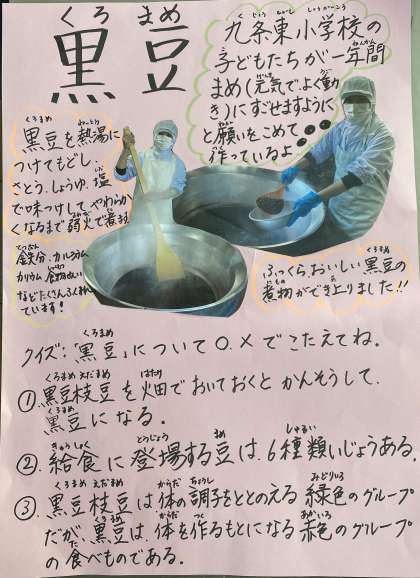 くろ まめ
黒豆
くじょうひがししょうがっこう
九条東小学校の
子どもたちが一年間
まめ(元気でよく動
き)にすごせますように
と願いをこめて
作っているよ
黒豆を熱湯に
つけてもどし、
さとう、しょうゆ、塩
で味つけして、やわらか
くなるまで弱火で煮ます
鉄分、カルシウム、
カリウム、食物せんい
などたくさんふくまれ
ています!
ふっくら、おいしい黒豆の
煮物ができ上りました!!
クイズ:「黒豆」について○.×でこたえてね。
①黒豆枝豆を畑でおいておくとかんそうして、
黒豆になる.
②.給食に登場する豆は、6種類いじょうある.
③.黒豆枝豆は体の調子をととのえる緑色のグループ
だが、黒豆は、体を作るもとになる赤色のグループ
の食べものである.